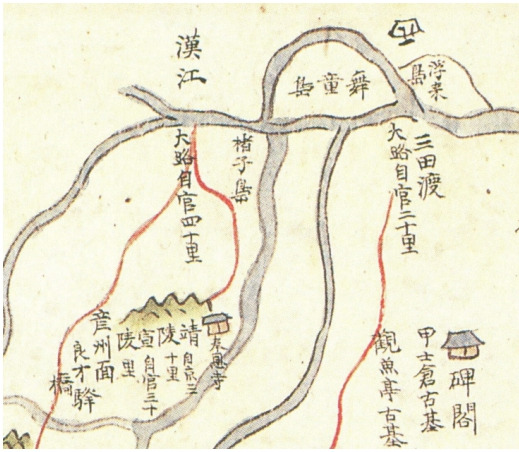 漢江
大路自官四十里
楮子島
舞童島
浮来島
三田渡
大路自官二十里
彦州面
良才驛
橋
宣陵
自官三十里
靖陵
自京三十里
奉恩寺
觀魚亭古基
甲士倉古基
碑閣